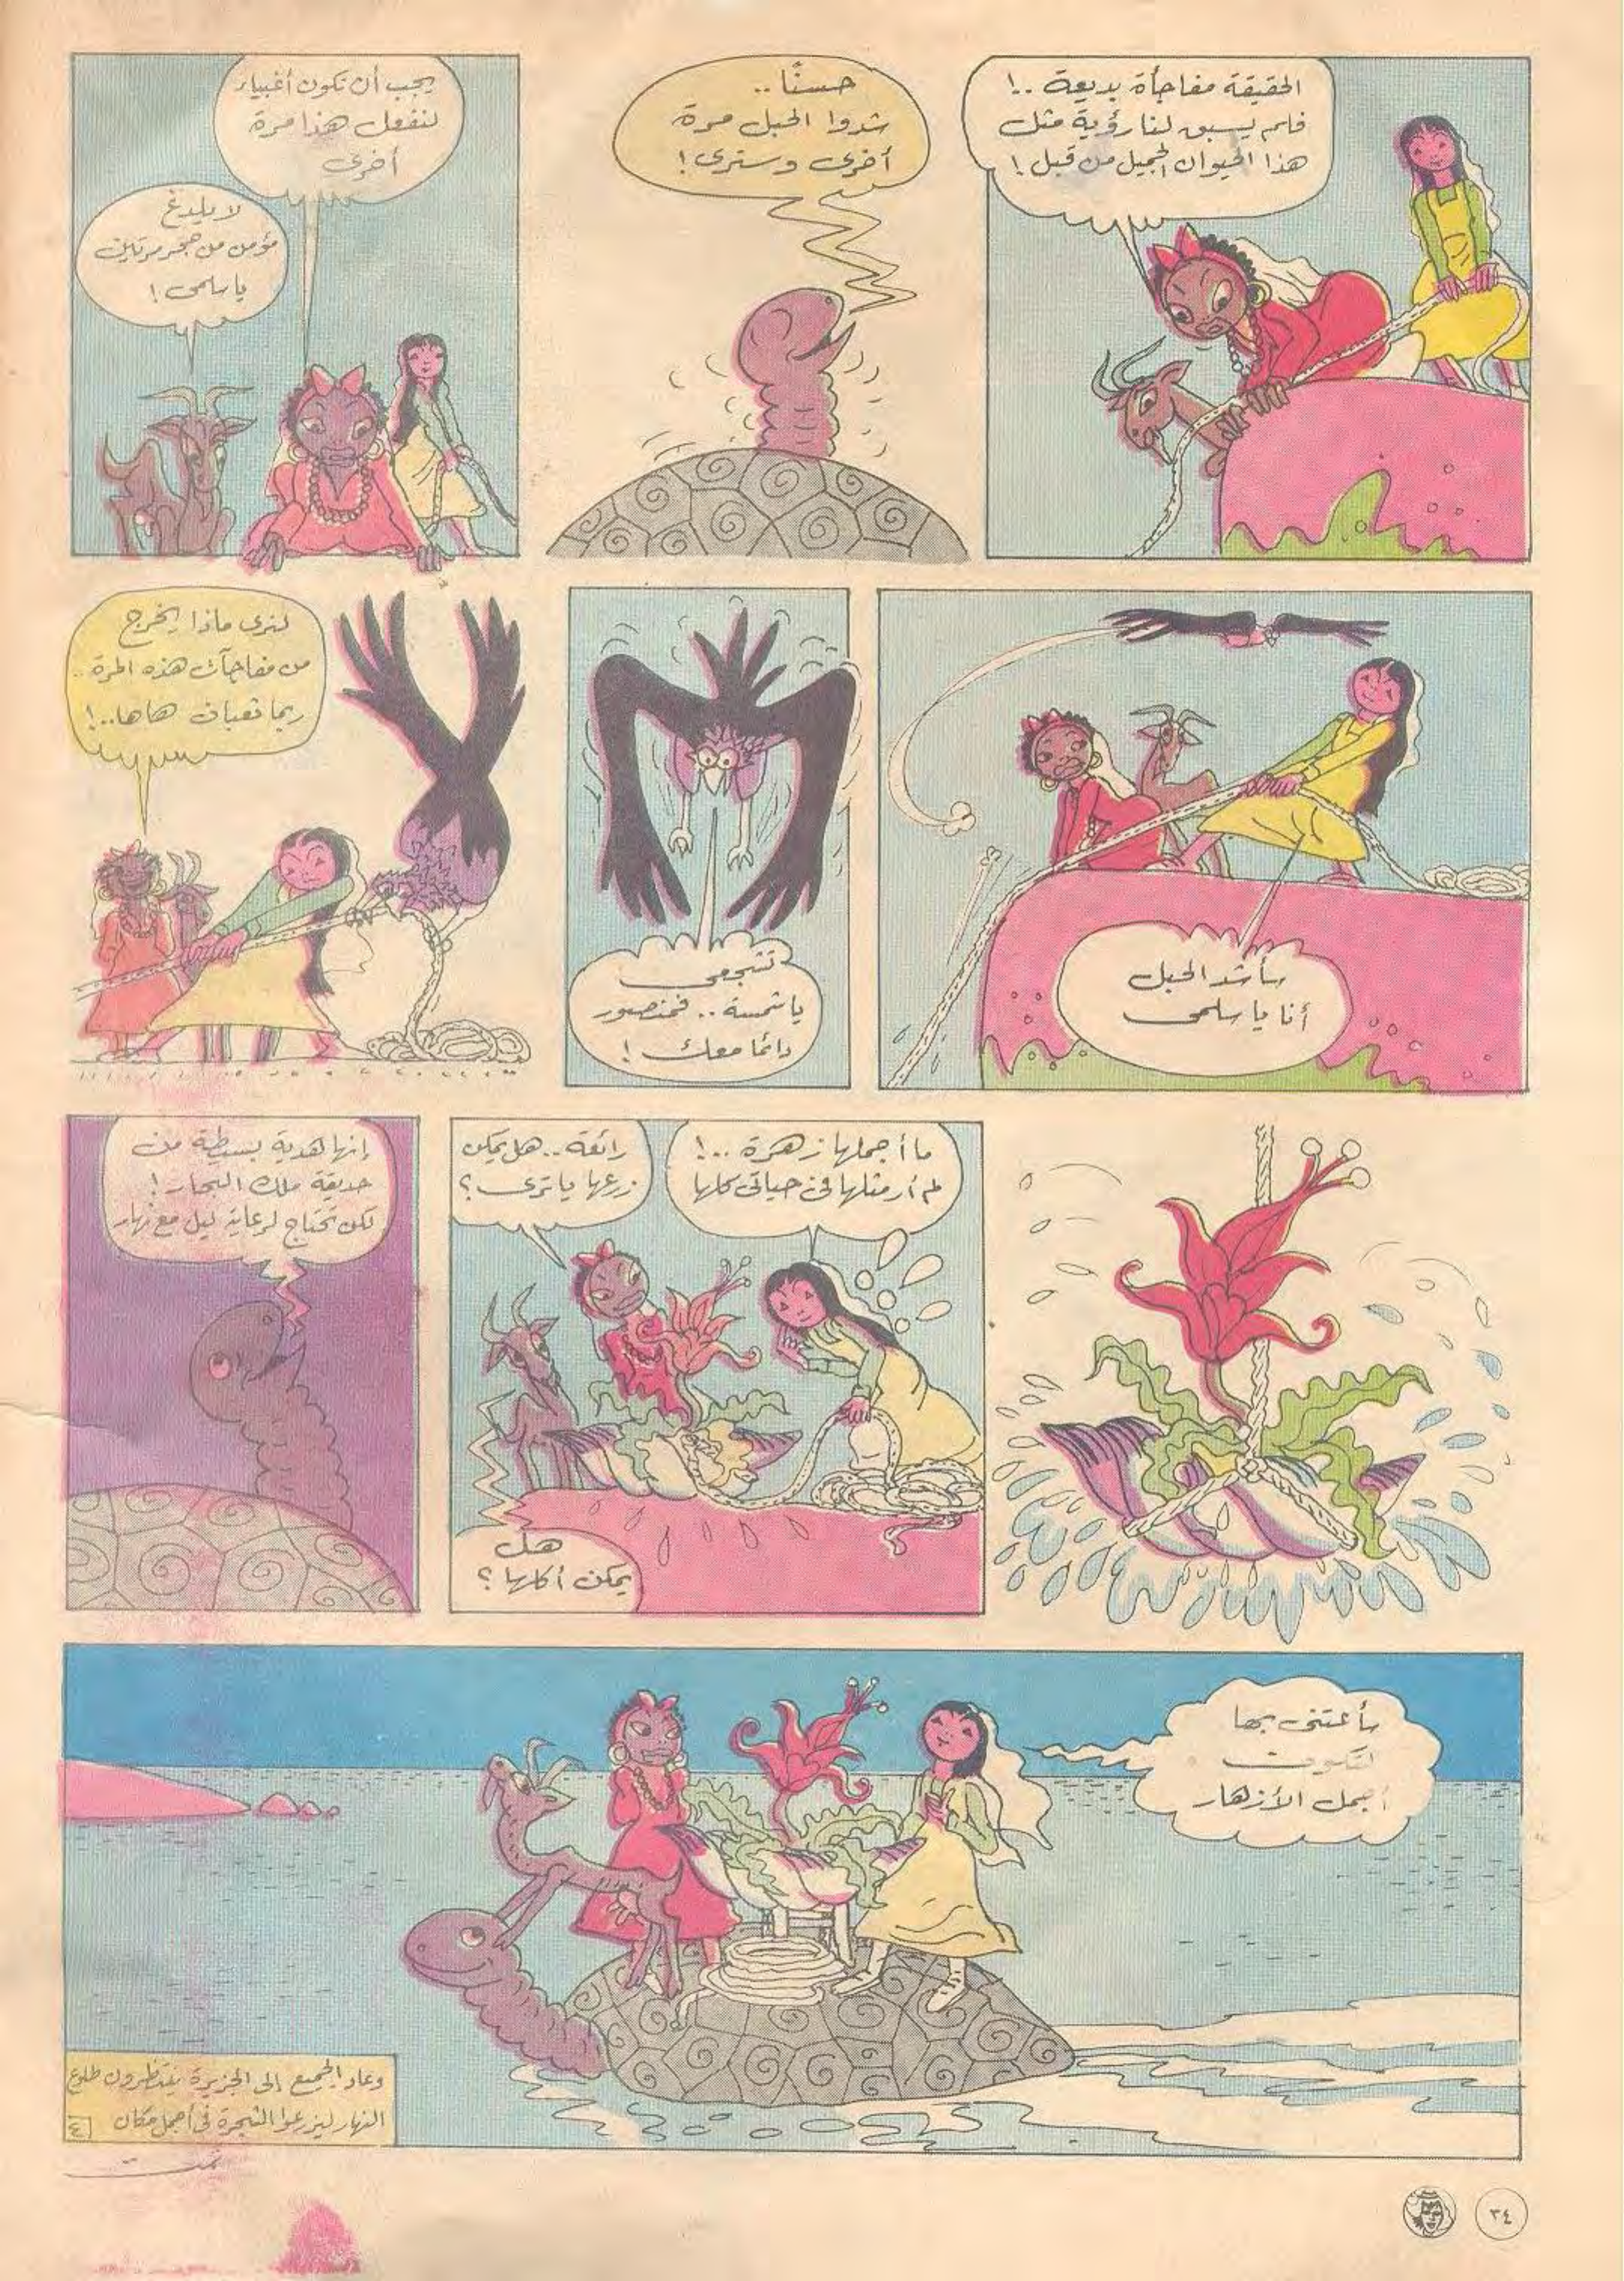 الحقيقة مفاجأة بديعة ..!
فلم يسبق لنا رؤية مثل
هذا الحيوان الجميل من قبل !
حسنًا ..
شدوا الحبل مرة
أخرى وسنرى !
يجب أن نكون أغبياء
لنفعل هذا مرة
أخرى
لا يلدغ
مؤمن من جحر مرتين
يا سلمى !
سأشد الحبل
أنا يا سلمى
تشجعى
يا شمسة .. فمنصور
دائما معك !
لنرى ماذا يخرج
من مفاجآت هذه المرة ..
ربما ثعبان هاها ..!
ما أجملها زهرة ..!
لم أر مثلها فى حياتى كلها
رائعة .. هل يمكن
زرعها يا ترى ؟
هل
يمكن أكلها ؟
إنها هدية بسيطة من
حديقة ملك البحار !
لكن تحتاج لرعاية ليل مع نهار
سأعتنى بها
لتكون
أجمل الأزهار
وعاد الجميع إلى الجزيرة ينتظرون طلوع
النهار ليزرعوا الشجرة فى أجمل مكان
٤
تمت
٣٤